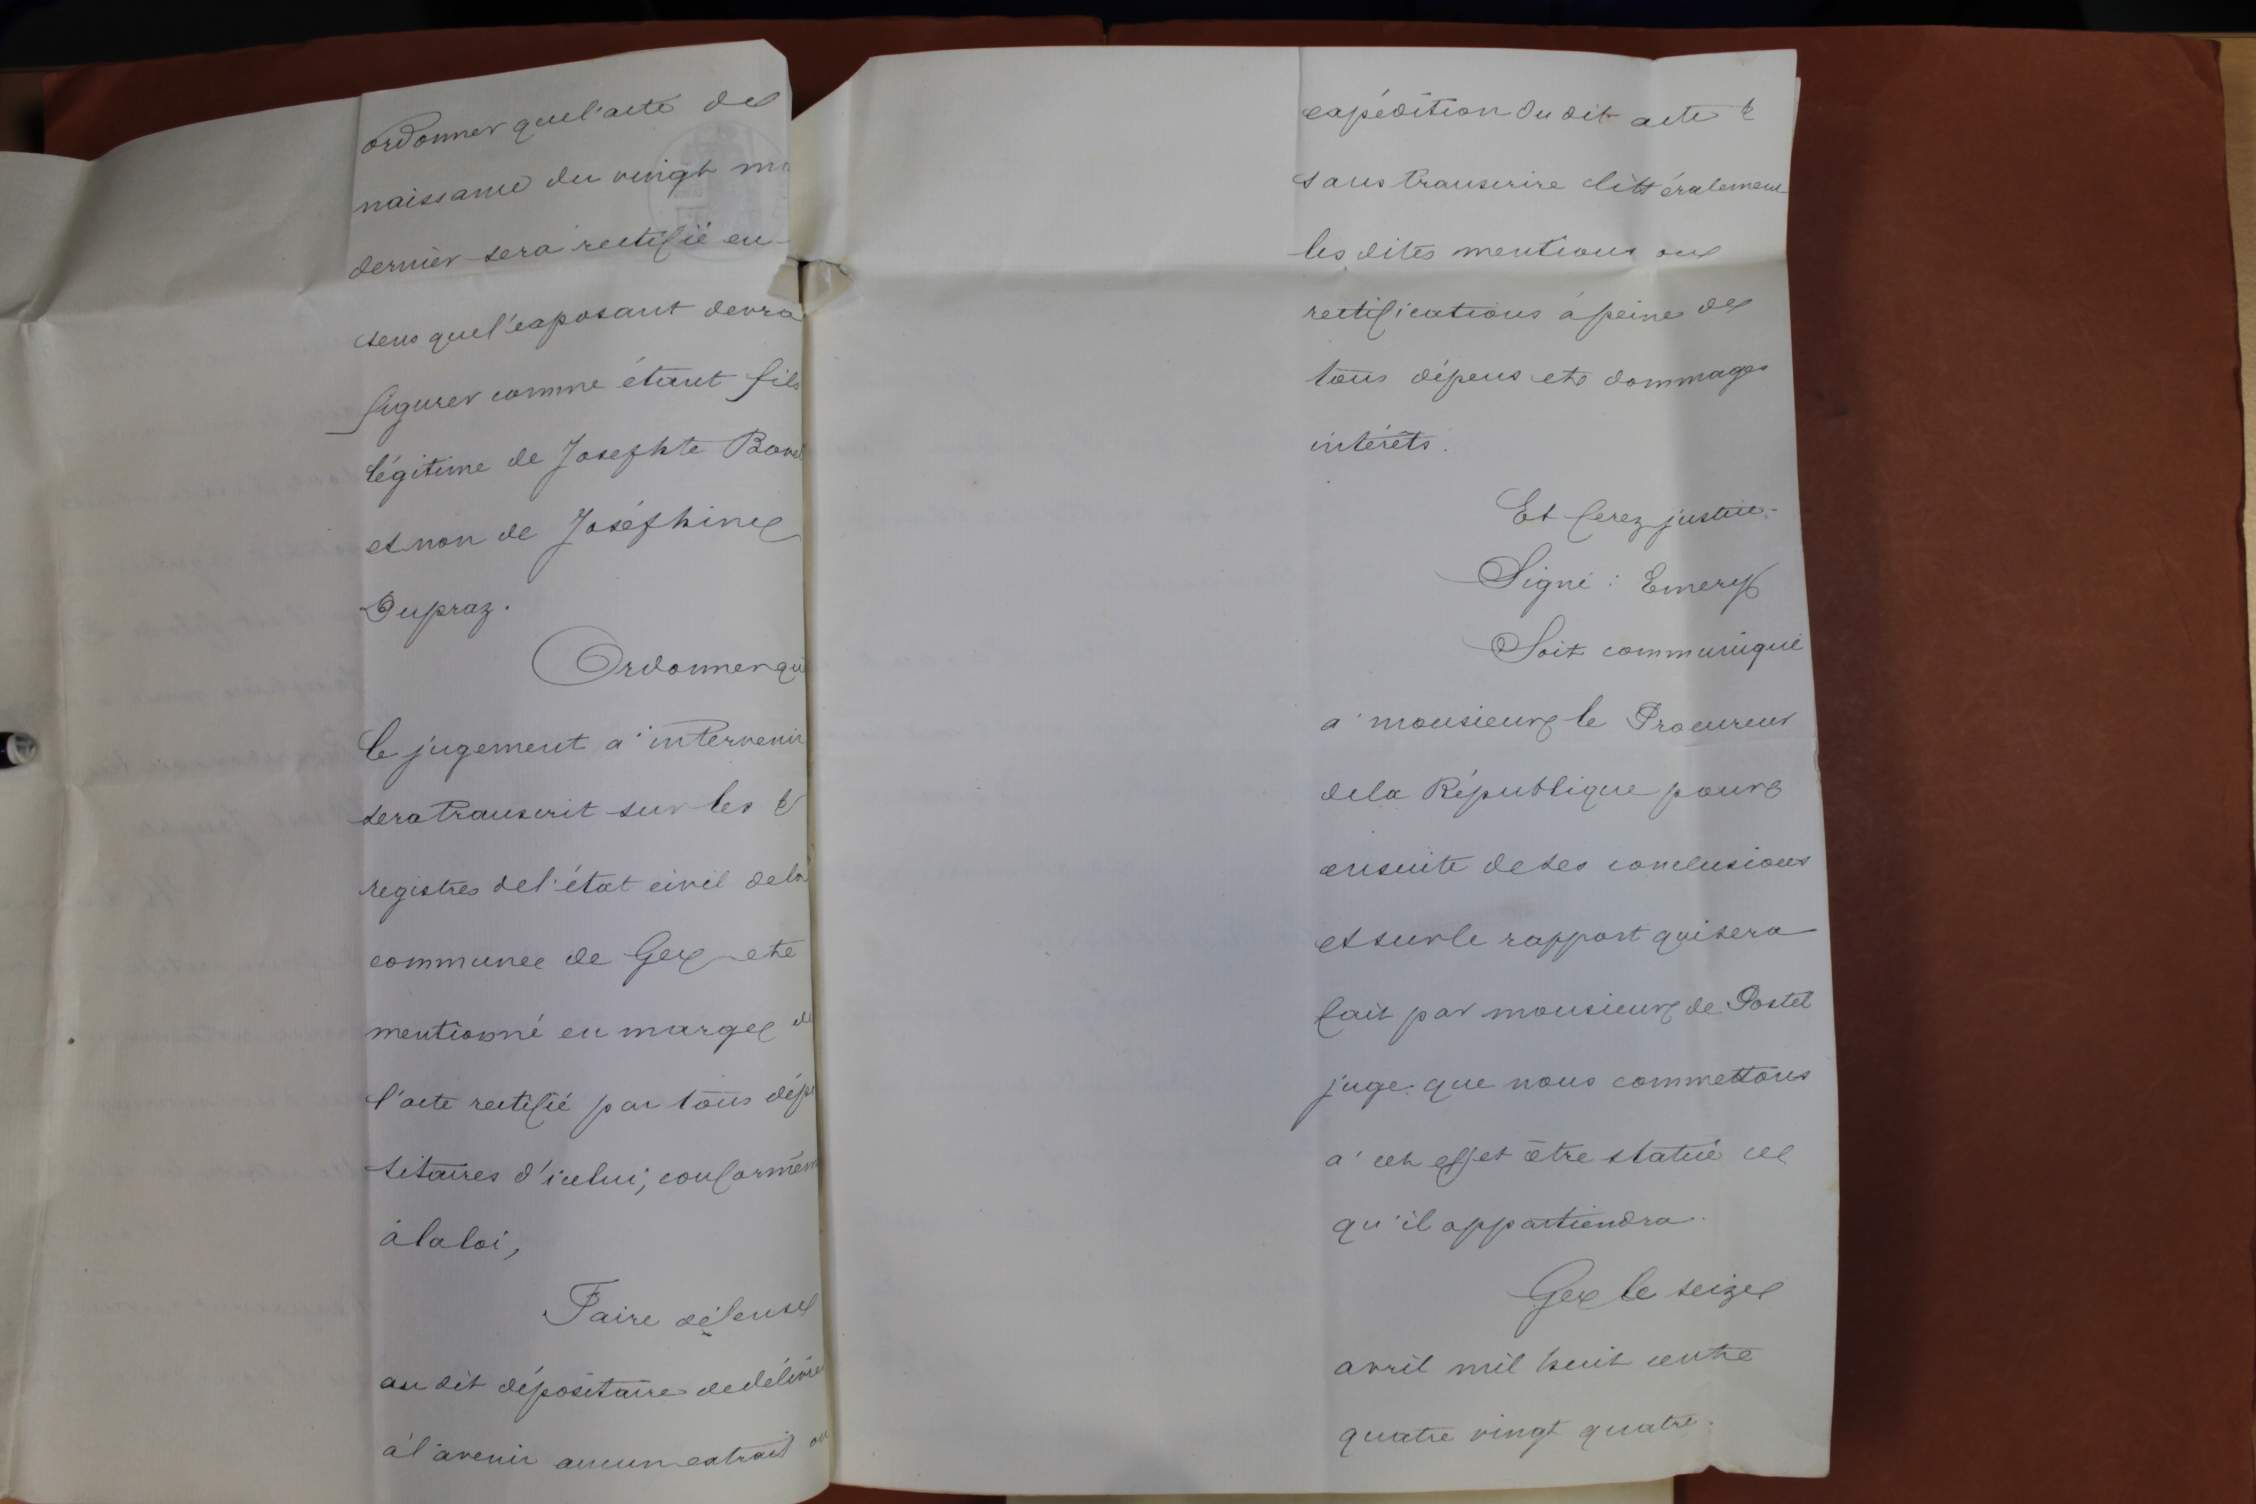 ordonner que l'acte de
naissance du vingt
dernier sera rectifié en
sens que l'exposant devra
figurer comme étant fils
légitime de Josephte
et non de Joséphine
Dupraz.
Ordonner qu
le jugement à intervenir
sera transcrit sur les
registres de l'état civil de la
commune de Gex et
mentionné en marge de
l'acte rectifié par tous dépo
sitaires d'icelui, conformém
à la loi,
Faire défense
au dit dépositaire de délivrer
à l'avenir aucun extrait ou
expédition du dit acte
sans transcrire littéralement
les dites mentions ou
rectifications à peine de
tous dépens et dommages
intérêts.
Et ferez justice.
Signé : Emery
Soit communiqué
à monsieur le Procureur
de la République pour
ensuite de ses conclusions
et sur le rapport qui sera
fait par monsieur de Postel
juge que nous commettons
à cet effet être statué ce
qu'il appartiendra.
Gex le seize
avril mil huit cent
quatre vingt quatre.